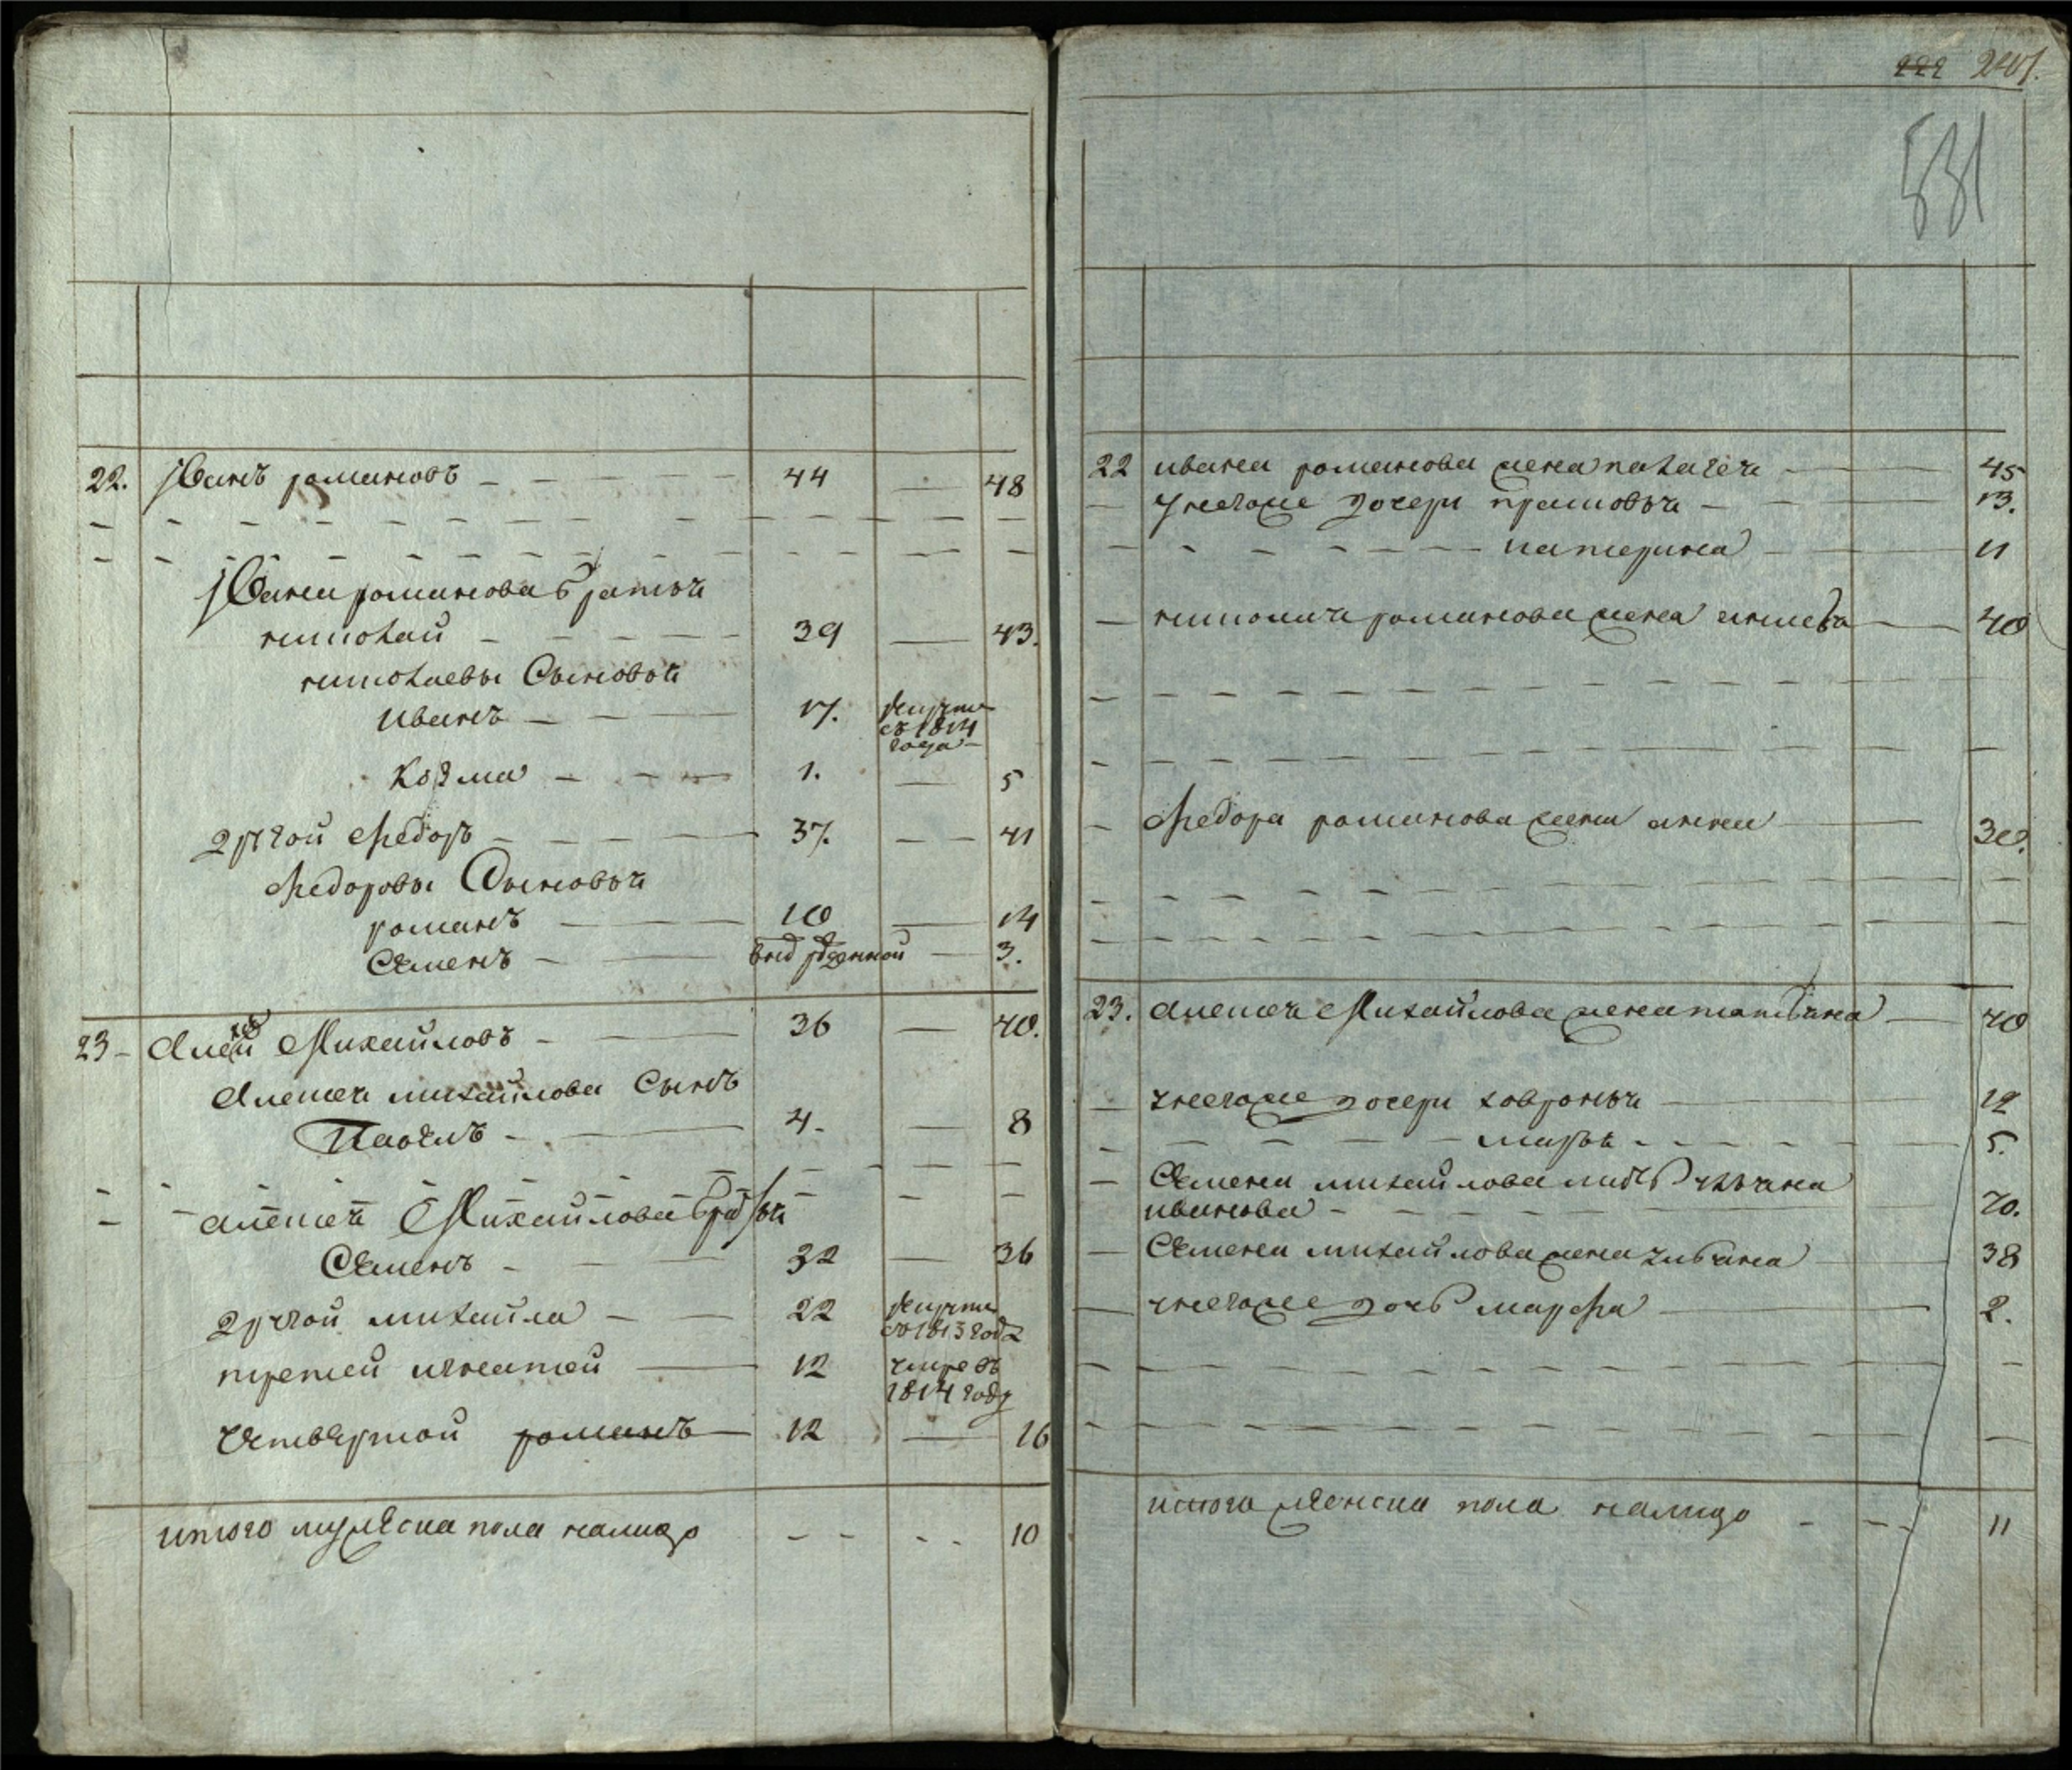 22. Иванъ романовъ 44 48
Ивана романова братья
николай 39 43.
николаевы Сыновья
иванъ 17. рекрутъ
съ 1814
года
козма 1. 5
другой федоръ 37. 41
федоровы Сыновья
романъ 10 14
Семенъ 3.
23 Алексей Михайловъ 36 40.
Алексея михайлова Сынъ
Павелъ 4. 8
алексея Михайлова братья
Семенъ 32 36
другой михайла 22 рекрутъ
съ 1813 года
третей игнатей 12 умре въ
1814 году
Четвертой романъ 12 16
итого мужеска пола налицо 10
222 241.
531
22 ивана романова жена пелагея 45
у него же дочери прасковья 13.
катерина 11
николая романова жена 40
федора романова жена анна 30.
23. алексея Михайлова жена татьяна 40
у него же дочери хавронья 12
марья 5.
Семена михайлова мать ульяна
иванова 70.
Семена михайлова жена ульяна 38
у него же дочь марфа 2.
итого женска пола налицо 11